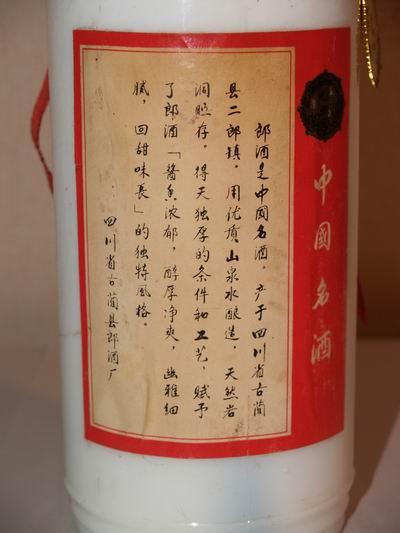 中國名酒
郎酒是中國名酒。产于四川省古蔺
县二郎镇。用优質山泉水酿造，天然岩
洞贮存。得天独厚的条件和工艺，赋予
了郎酒「醬香浓郁，醇厚净爽，幽雅细
腻，回甜味長」的独特風格。
四川省古蔺县郎酒厂